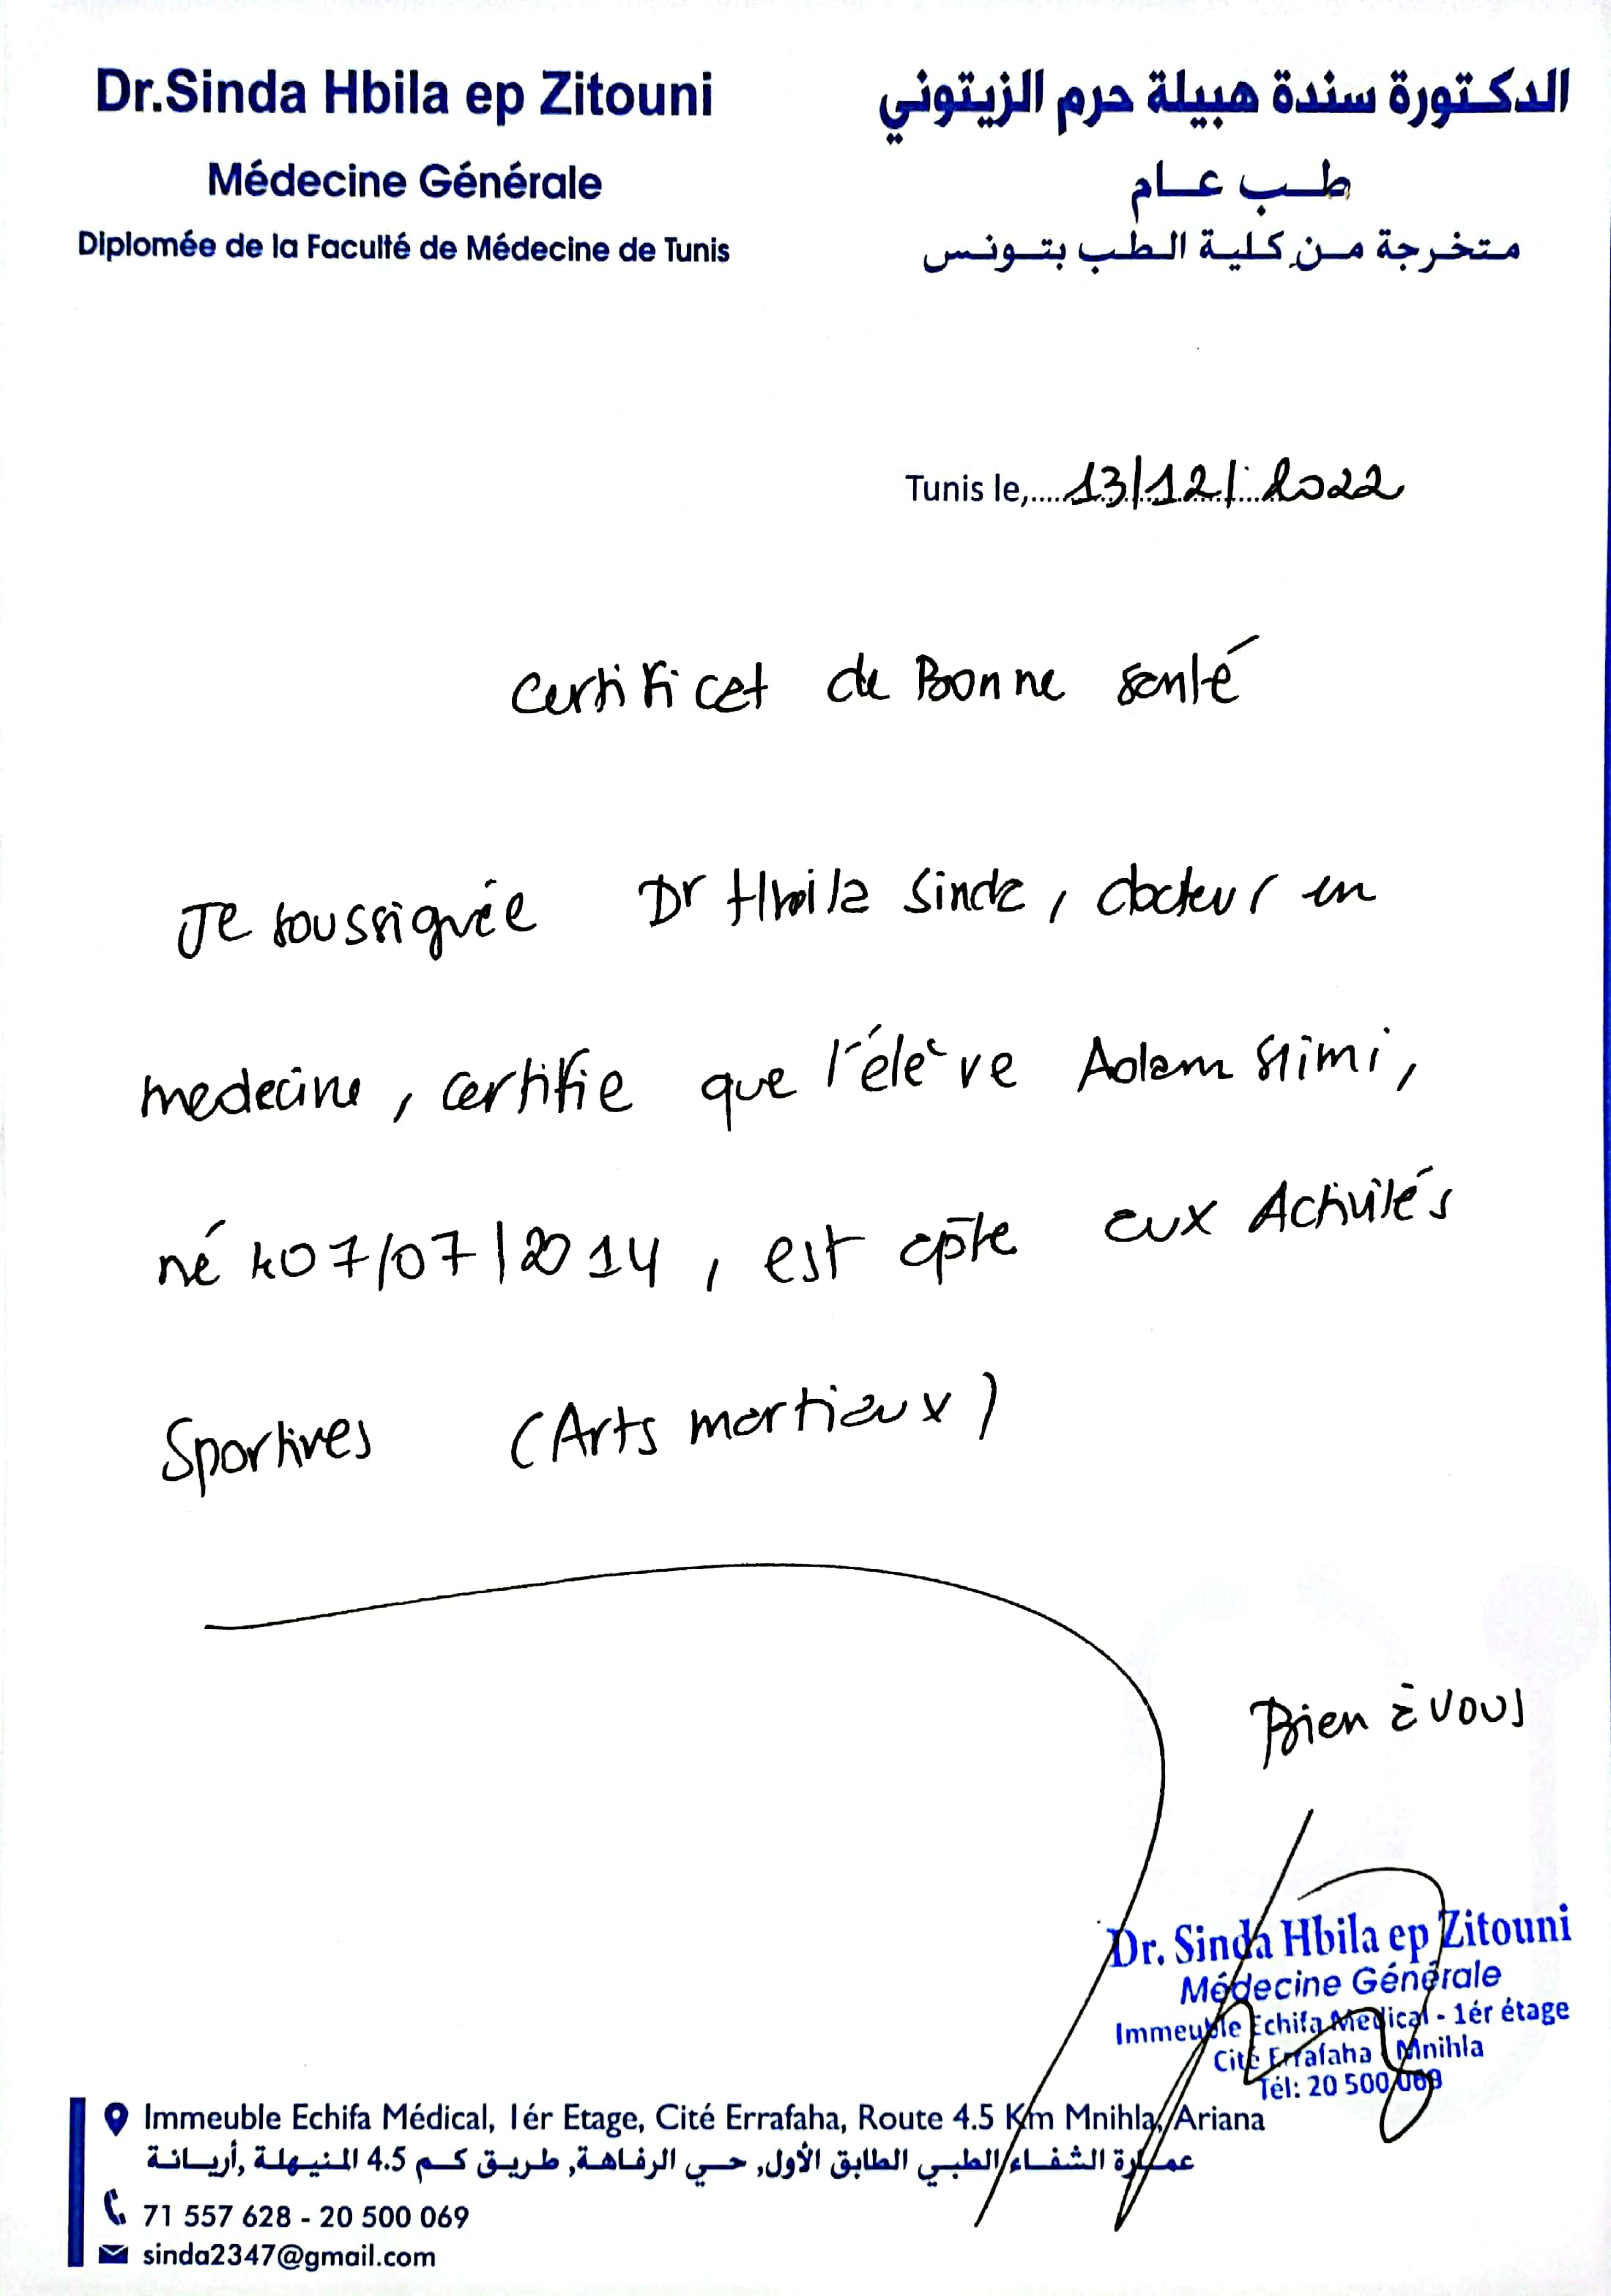 Dr.Sinda Hbila ep Zitouni
Médecine Générale
Diplomée de la Faculté de Médecine de Tunis
الدكتورة سندة هبيلة حرم الزيتوني
طب عام
متخرجة من كلية الطب بتونس
Tunis le,.....13/12/2022
Certificat de Bonne santé
Je soussignée Dr Hbila Sinda, docteur en
medecine, certifie que l'élève Adam Slimi,
né le 07/07/2014, est apte aux Activités
Sportives (Arts martiaux)
Bien à vous
Dr. Sinda Hbila ep Zitouni
Médecine Générale
Immeuble Echifa Medical - 1ér étage
Cité Errafaha Mnihla
Tél: 20 500 069
Immeuble Echifa Médical, 1ér Etage, Cité Errafaha, Route 4.5 Km Mnihla, Ariana
عمارة الشفاء الطبي الطابق الأول, حي الرفاهة, طريق كم 4.5 المنيهلة ,أريانة
71 557 628 - 20 500 069
sinda2347@gmail.com